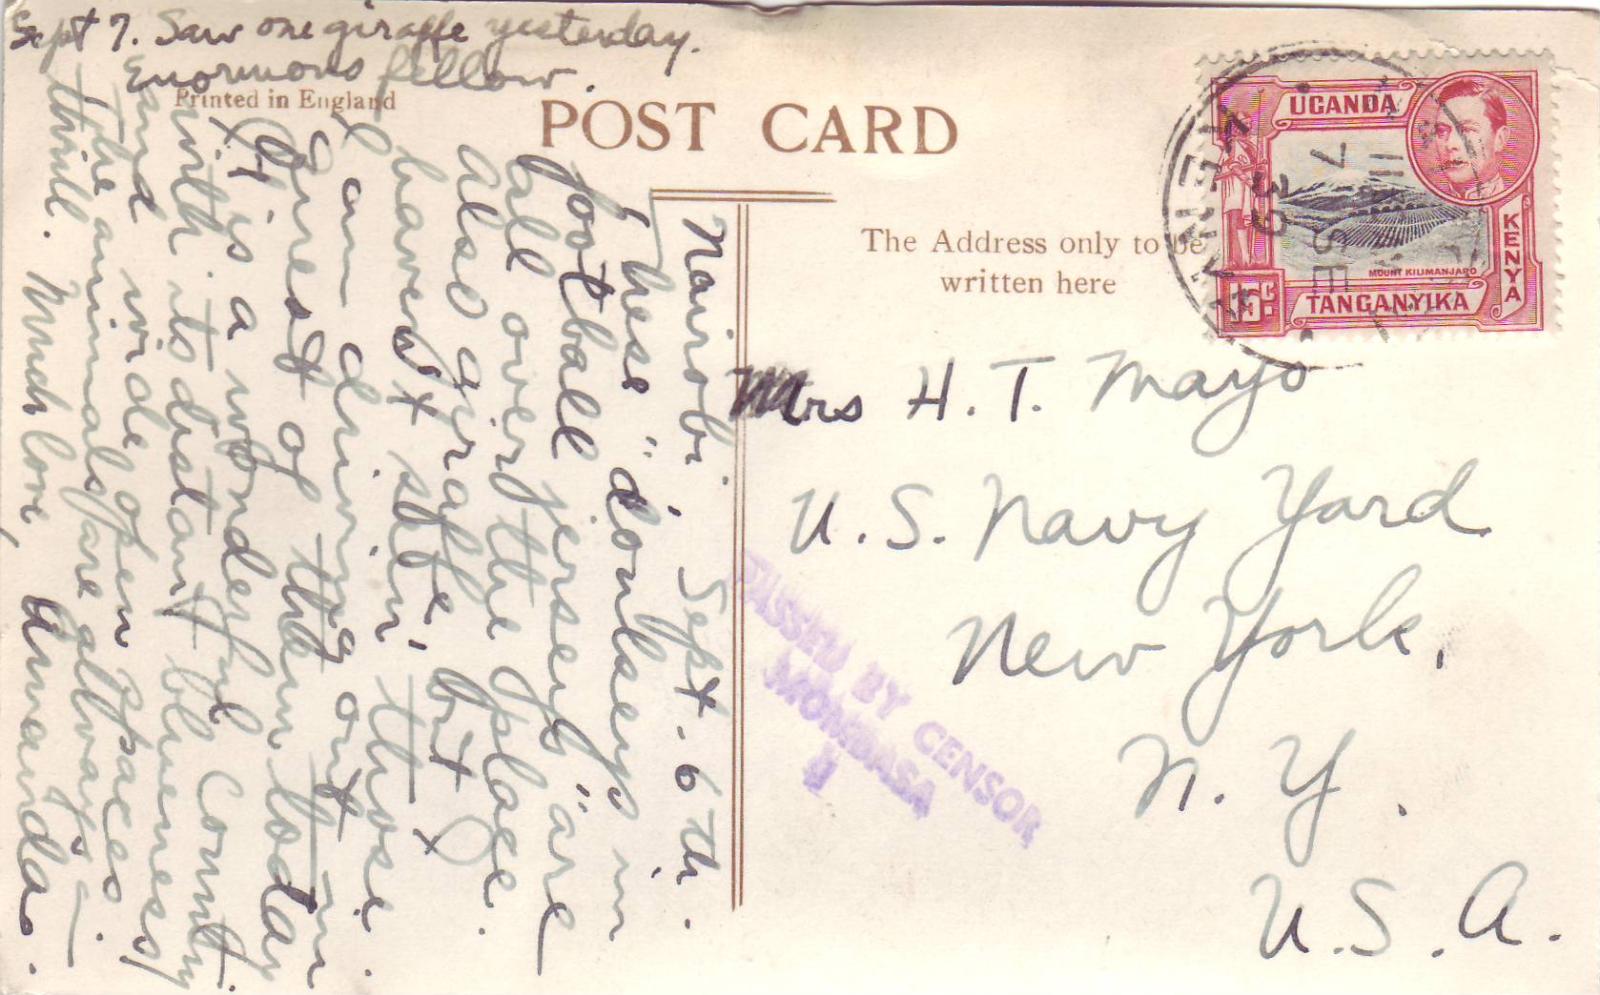 Sept 7. Saw one giraffe yesterday.
Enormous fellow.
Printed in England
POST CARD
The Address only to be
written here
UGANDA
KENYA
MOUNT KILIMANJARO
TANGANYIKA
15c
7 SE
39
Nairobi, Sept. 6th.
These "donkeys in
football jerseys" are
all over the place.
Also giraffe, but I
haven't seen those.
I am driving out in
quest of them today
It is a wonderful Country,
with its distant blueness,
and wide open spaces.
The animals are always a
thrill. Much love, Amanda.
Mrs H. T. Mayo
U.S. Navy Yard
New York,
N.Y.
U.S.A.
PASSED BY CENSOR
MOMBASA